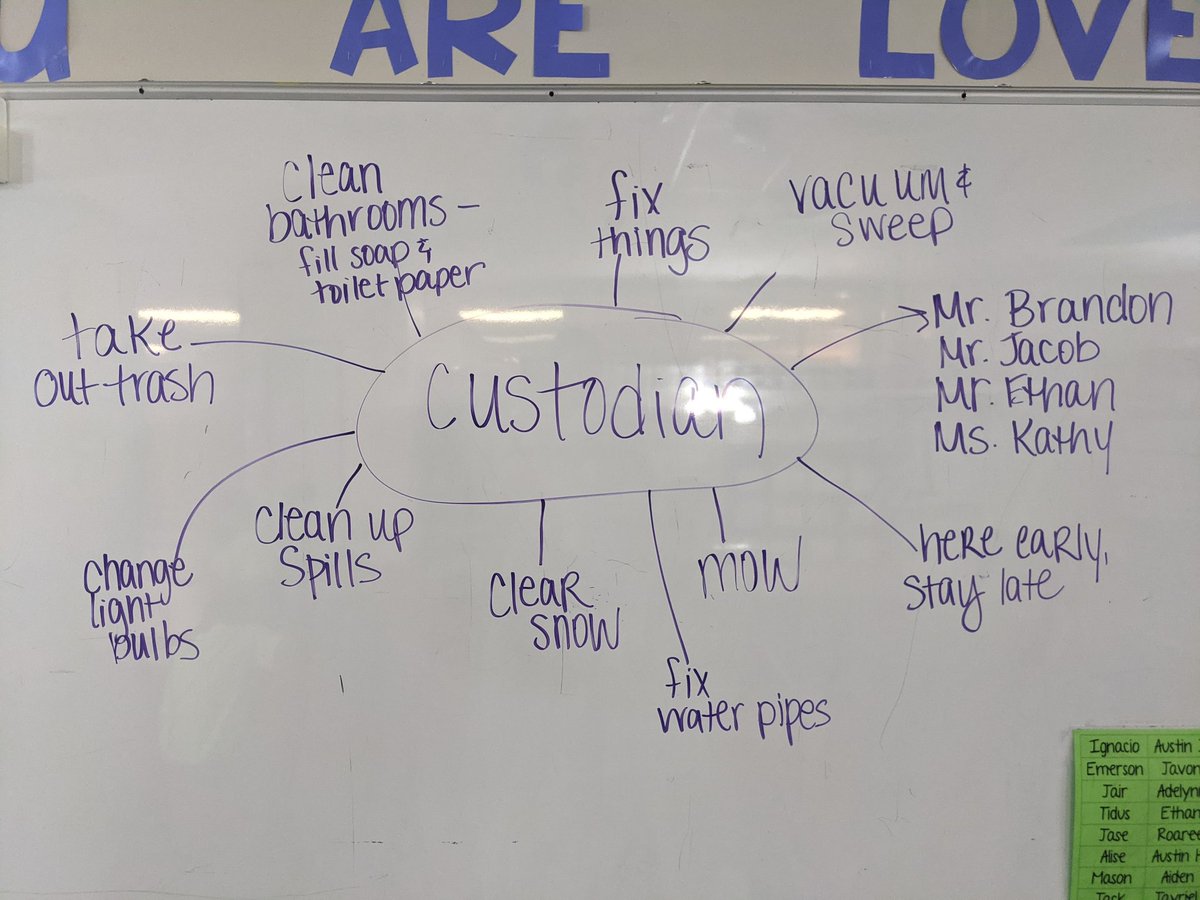 ARE LOVE
clean
bathrooms -
fill soap &
toilet paper
fix
things
vacuum &
sweep
take
out trash
custodian
Mr. Brandon
Mr. Jacob
Mr. Ethan
Ms. Kathy
change
light
bulbs
clean up
spills
clear
snow
mow
fix
water pipes
here early,
stay late
Ignacio Austin
Emerson Javon
Jair Adelynn
Tidus Ethan
Jase
Alise Austin H
Mason Aiden